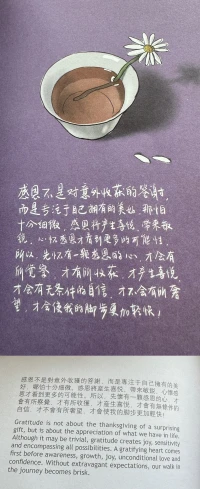 感恩不是对意外收获的答谢,
而是专注于自己拥有的美好,哪怕
十分细微,感恩将产生喜悦,带来敏
锐,心怀感恩才看到更多的可能性,
所以,先怀有一颗感恩的心,才会有
所觉察,才有所收获,才产生喜悦
才会有无条件的自信,才不会有所奢
望,才会使我的脚步更加轻快!
感恩不是對意外收穫的答謝,而是專注于自己擁有的美
好,哪怕十分細微,感恩將產生喜悅,帶來敏銳,心懷感
恩才看到更多的可能性,所以,先懷有一顆感恩的心,才
會有所察覺,才有所收穫,才產生喜悅,才會有無條件的
自信,才不會有所奢望,才會使我的腳步更加輕快!
Gratitude is not about the thanksgiving of a surprising
gift, but is about the appreciation of what we have in life.
Although it may be trivial, gratitude creates joy, sensitivity
and encompassing all possibilities. A gratifying heart comes
first before awareness, growth, joy, unconditional love and
confidence. Without extravagant expectations, our walk in
the journey becomes brisk.